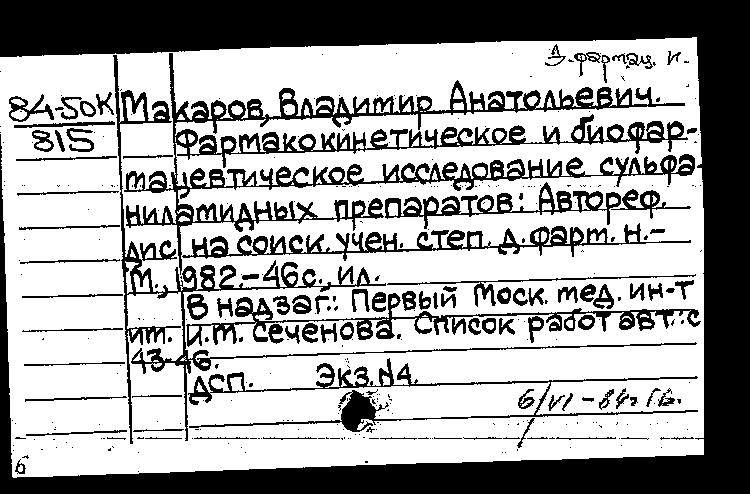 3-фармац. н.
84-50К Макаров, Владимир Анатольевич.
815 Фармакокинетическое и биофар-
мацевтическое исследование сульфа-
ниламидных препаратов: Автореф.
дис. на соиск. учен. степ. д. фарм. н.-
М., 1982.-46с., ил.
В надзаг.: Первый Моск. мед. ин-т
им. И.М. Сеченова. Список работ авт.: с
43-46.
ДСП. Экз.N4.
6/VI-84г.
6